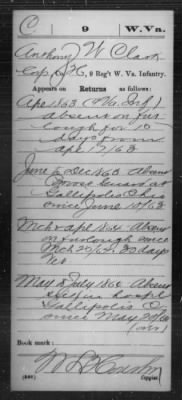 C | 9 | W. Va.
Anthony W Clark
Corp, Co H, 9 Reg't W. Va. Infantry.
Appears on Returns as follows:
Apl 1863
absent on fur
lough for 10
days from
Apl 17/63
June to Dec 1863 Absent
Convex Guard at
Gallipolis Ohio
since June 17/63
Mch & Apl 1864 Absent
on furlough since
Mch 27/64. 30 days
May & July 1864 Absent
sick in hospl
Gallipolis O
since May 20/64
Book mark:
Copyist.